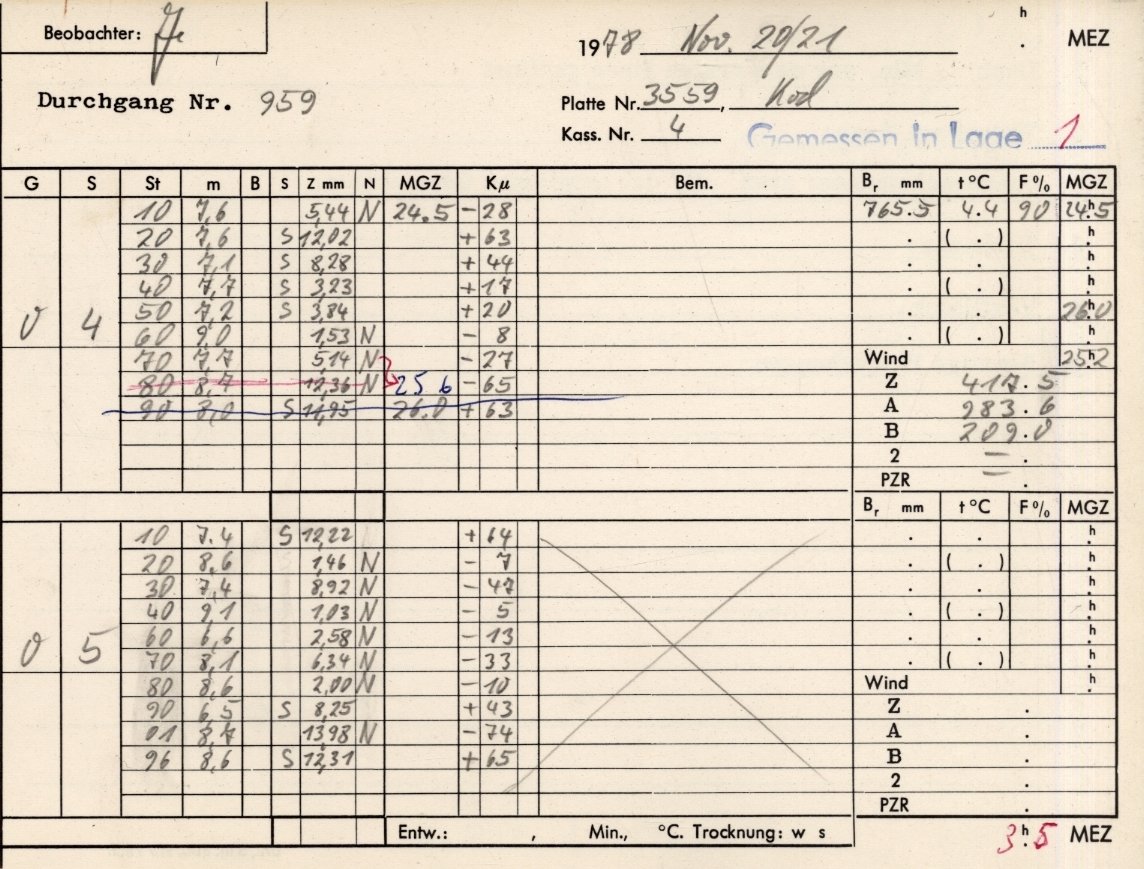 Beobachter: Je
1978 Nov. 20/21 h . MEZ
Durchgang Nr. 959
Platte Nr. 3559, Kod
Kass. Nr. 4 Gemessen in Lage 1
G S St m B S Z mm N MGZ Kμ Bem. Br mm t °C F % MGZ
10 7,6 5,44 N 24.5 - 28 765.5 4.4 90 24.5 h
20 7,6 S 12,02 + 63 . ( . ) h
30 7,1 S 8,28 + 44 . . h
40 7,7 S 3,23 + 17 . ( . ) h
0 4 50 7,2 S 3,84 + 20 . . 26.0 h
60 9,0 1,53 N - 8 . ( . ) h
70 7,7 5,14 N - 27 Wind 25.2 h
80 8,7 12,36 N 25 6 - 65 Z 417.5
90 8,0 S 11,95 26.0 + 63 A 983.6
B 209.0
2 – .
PZR – .
Br mm t °C F % MGZ
10 7,4 S 12,22 + 64 . . h
20 8,6 1,46 N - 7 . ( . ) h
30 7,4 8,92 N - 47 . . h
40 9,1 1,03 N - 5 . ( . ) h
0 5 60 6,6 2,58 N - 13 . . h
70 8,1 6,34 N - 33 . ( . ) h
80 8,6 2,00 N - 10 Wind h
90 6,5 S 8,25 + 43 Z .
01 8,7 13,98 N - 74 A .
96 8,6 S 12,31 + 65 B .
2 .
PZR .
Entw.: , Min., °C. Trocknung: w s
3 h . 5 MEZ